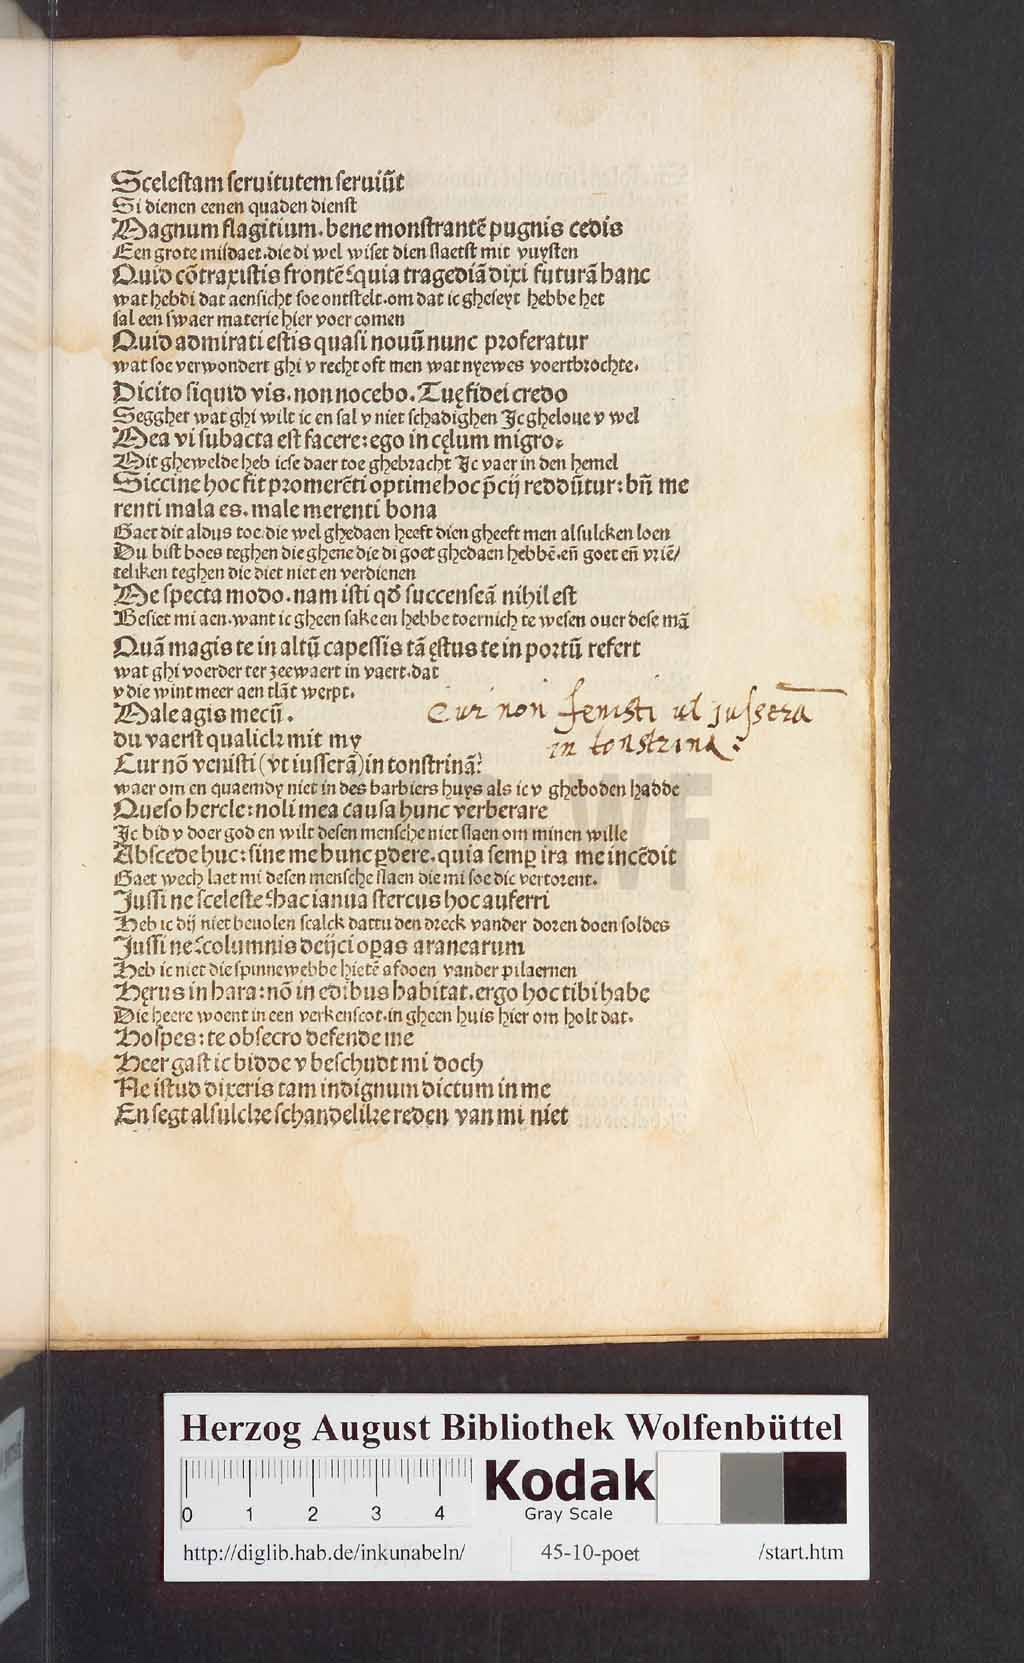 Scelestam seruitutem seruiūt
Si dienen eenen quaden dienst
Magnum flagitium. bene monstrantē pugnis cedis
Een grote misdaet. die di wel wiset dien slaetst mit vuysten
Quid cōtraxistis frontē? quia tragediā dixi futurā hanc
wat hebdi dat aensicht soe ontstelt. om dat ic gheseyt hebbe het
sal een swaer materie hier voer comen
Quid admirati estis quasi nouū nunc proferatur
wat soe verwondert ghi v recht oft men wat nyewes voertbrochte.
Dicito siquid vis. non nocebo. Tuę fidei credo
Segghet wat ghi wilt ic en sal v niet schadighen Ic gheloue v wel
Mea vi subacta est facere: ego in cęlum migro.
Mit ghewelde heb icse daer toe ghebracht Ic vaer in den hemel
Siccine hoc fit promerēti optime hoc p̄cij reddūtur: bn̄ me
renti mala es. male merenti bona
Gaet dit aldus toe. die wel ghedaen heeft dien gheeft men alsulcken loen
Du bist boes teghen die ghene die di goet ghedaen hebbē. en̄ goet en̄ vriē/
teliken teghen die diet niet en verdienen
Me specta modo. nam isti qd̄ succenseā nihil est
Besiet mi aen. want ic gheen sake en hebbe toernich te wesen ouer dese mā
Quā magis te in altū capessis tā ęstus te in portū refert
wat ghi voerder ter zeewaert in vaert. dat
v die wint meer aen tlāt werpt.
Male agis mecū.
Cur non fenisti ut jusserā
du vaerst qualick mit my
in tonstrina?
Cur nō venisti (vt iusserā) in tonstrinā?
waer om en quaemdy niet in des barbiers huys als ic v gheboden hadde
Queso hercle: noli mea causa hunc verberare
Ic bid v doer god en wilt desen mensche niet slaen om minen wille
Abscede huc: sine me hunc ꝑdere. quia semꝑ ira me incēdit
Gaet wech laet mi desen mensche slaen die mi soe dic vertorent.
Jussi ne sceleste? hac ianua stercus hoc auferri
Heb ic dij niet beuolen scalck dattu den dreck vander doren doen soldes
Jussi ne? columnis deijci oꝑas aranearum
Heb ic niet die spinnewebbe hietē afdoen vander pilaernen
Hęrus in hara: nō in edibus habitat. ergo hoc tibi habe
Die heere woent in een verkenscot. in gheen huis hier om holt dat.
Hospes: te obsecro defende me
Heer gast ic bidde v beschudt mi doch
Ne istud dixeris tam indignum dictum in me
En segt alsulcke schandelike reden van mi niet
Herzog August Bibliothek Wolfenbüttel
0 1 2 3 4
Kodak
Gray Scale
http://diglib.hab.de/inkunabeln/ 45-10-poet /start.htm